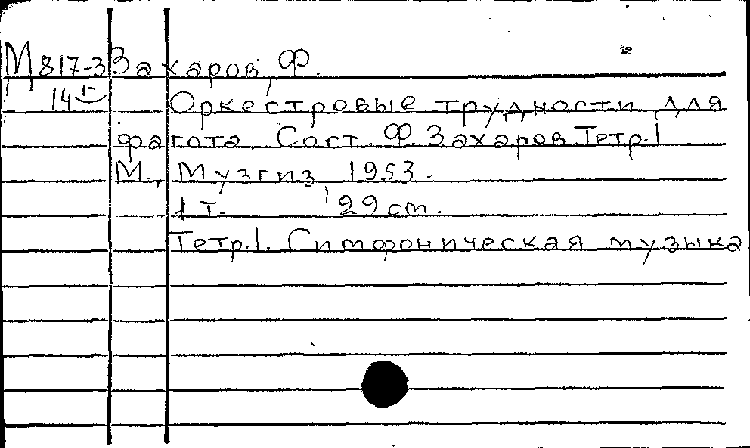 М817-3 Захаров, Ф.
14 Оркестровые трудности для
фагота. Сост. Ф. Захаров. Тетр. 1
М., Музгиз, 1953.
1 т. 29 cm.
Тетр. 1. Симфоническая музыка